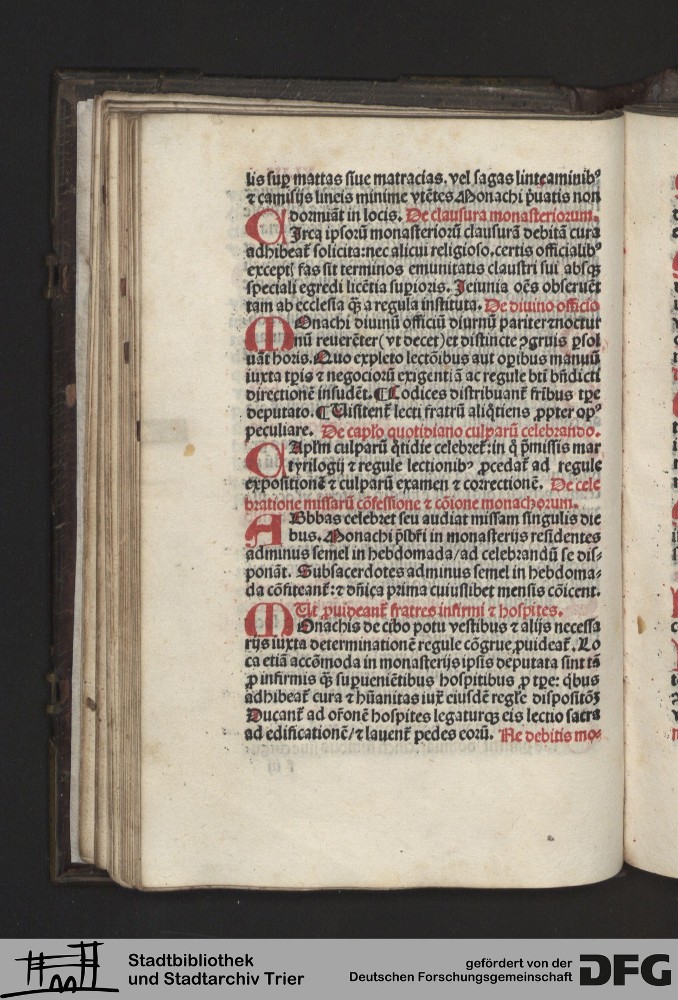 lis suꝑ mattas siue matracias. vel sagas linteaminibꝰ
⁊ camisijs lineis minime vtẽtes Monachi pͥuatis non
dormiãt in locis. De clausura monasteriorum.
CIrca ipsorũ monasteriorũ clausurã debitã cura
adhibeat᷑ solicita: nec alicui religioso. certis officialibꝰ
exceptꝭ fas sit terminos emunitatis claustri sui absqꝫ
speciali egredi licẽtia supioris. Jeiunia oẽs obseruẽt
tam ab ecclesia qͣꝫ a regula instituta. De diuino officio
MOnachi diuinũ officiũ diurnũ pariter ⁊ noctur
nũ reuerẽter (vt decet) et distincte ꝯgruis ꝑsol
uãt horis. Quo expleto lectõibus aut oꝑibus manuũ
iuxta tꝑis ⁊ negociorũ exigentiã ac regule btĩ bñdicti
directionẽ insudẽt. ¶ Codices distribuant᷑ fribus tꝑe
deputato. ¶ Uisitent᷑ lecti fratrũ aliqͦtiens ꝓpter opꝰ
peculiare. De caplo quotidiano culparũ celebrando.
CAplm culparũ qͦtidie celebret᷑: in qͦ pͥmissis mar
tyrilogij ⁊ regule lectionibꝰ ꝓcedat᷑ ad regule
expositionẽ ⁊ culparũ examen ⁊ correctionẽ. De cele
bratione missarũ cõfessione ⁊ cõione monachorum.
ABbas celebret seu audiat missam singulis die
bus. Monachi p̃sbr̃i in monasterijs residentes
adminus semel in hebdomada / ad celebrandũ se dis⸗
ponãt. Subsacerdotes adminus semel in hebdoma⸗
da cõfiteant᷑: ⁊ dñica prima cuiuslibet mensis cõicent.
Ut ꝓuideant᷑ fratres infirmi ⁊ hospites.
MOnachis de cibo potu vestibus ⁊ alijs necessa
rijs iuxta determinationẽ regule cõgrue ꝓuideat᷑. Lo
ca etiã accõmoda in monasterijs ipsis deputata sint tã
ꝓ infirmis qͣꝫ supueniẽtibus hospitibus ꝓ tꝑe: qͥbus
adhibeat᷑ cura ⁊ hũanitas iuxͣ eiusdẽ regle dispositõꝫ
Ducant᷑ ad or̃onẽ hospites legaturqꝫ eis lectio sacra
ad edificationẽ / ⁊ lauent᷑ pedes eorũ. Re debitis mo⸗
Stadtbibliothek
und Stadtarchiv Trier
gefördert von der
Deutschen Forschungsgemeinschaft
DFG